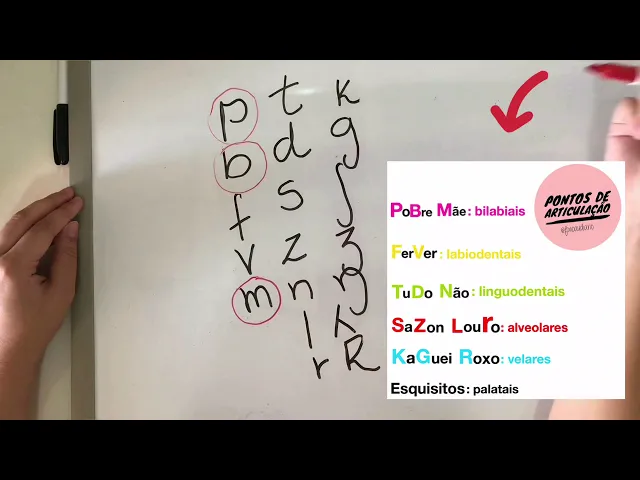 p t k
b d g
f s ʃ
v z ʒ
m n ɲ
l ʎ
r R
PONTOS DE
ARTICULAÇÃO
PoBre Mãe: bilabiais
FerVer: labiodentais
TuDo Não: linguodentais
SaZon Louro: alveolares
KaGuei Roxo: velares
Esquisitos: palatais